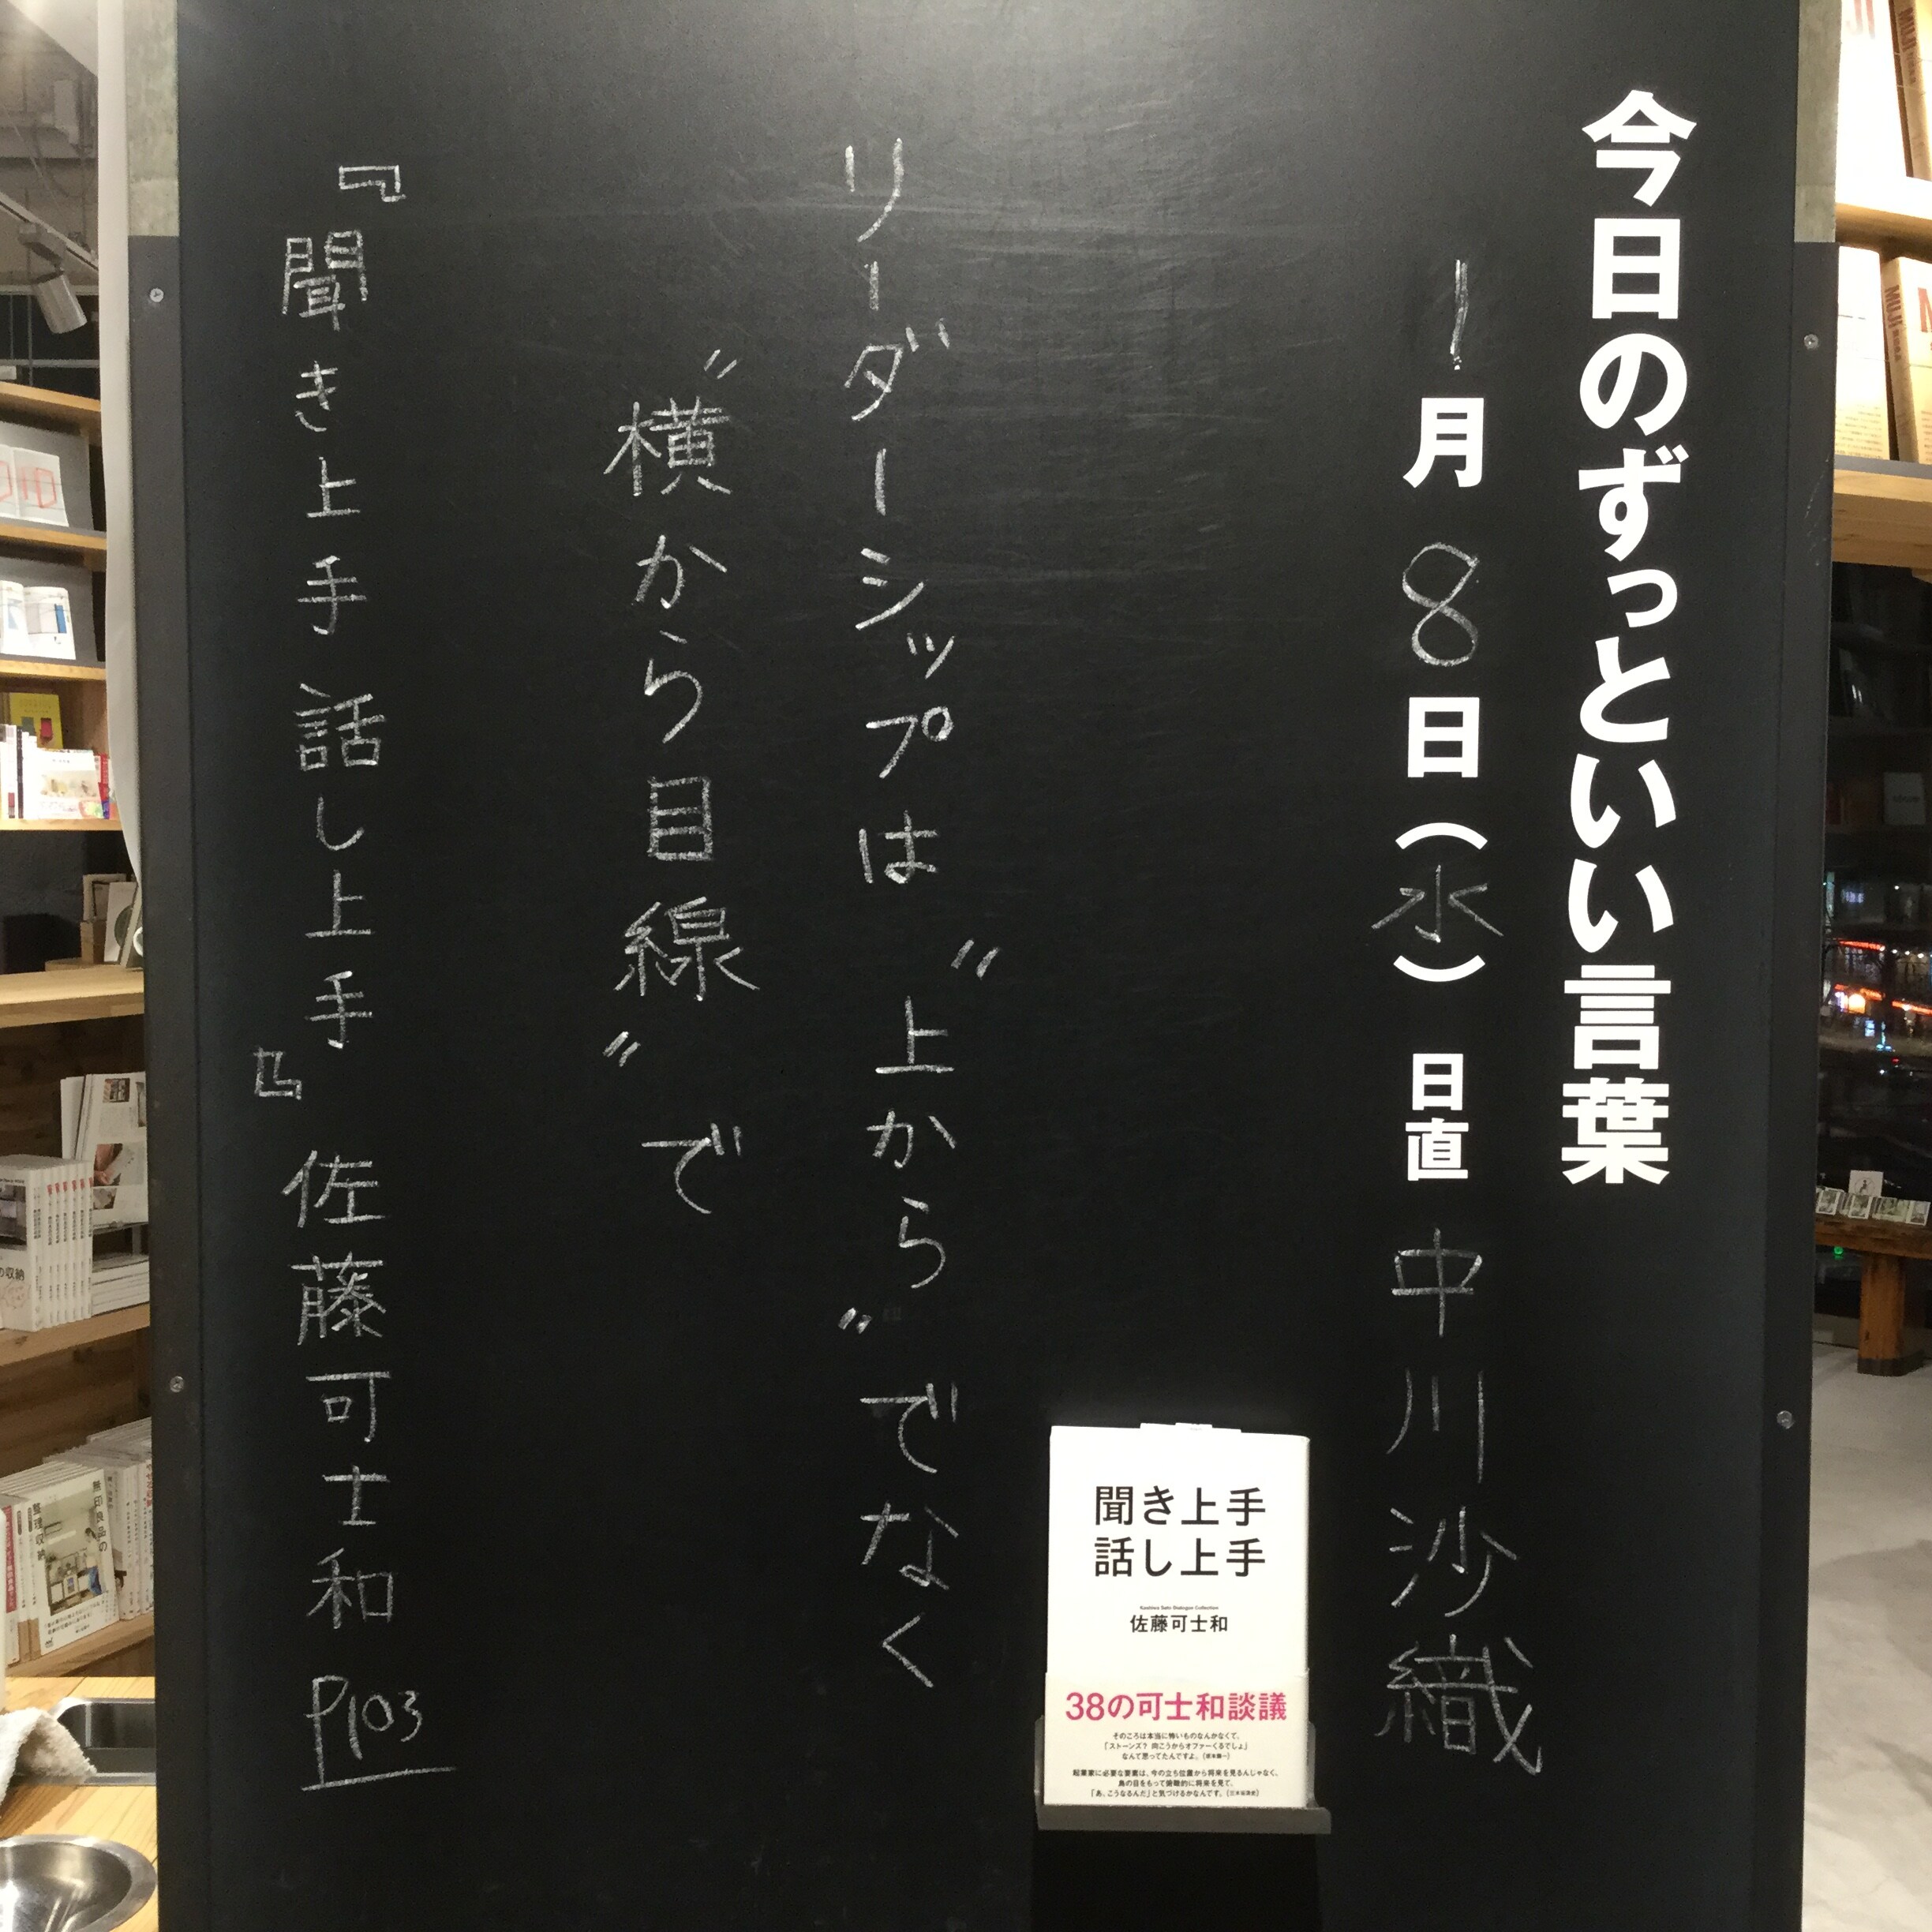 今日のずっといい言葉
1月8日(水) 日直 中川沙織
リーダーシップは〝上から〟でなく
〝横から目線〟で
『聞き上手 話し上手』 佐藤可士和 P103
聞き上手
話し上手
Kashiwa Sato Dialogue Collection
佐藤可士和
38の可士和談議
そのころは本当に怖いものなんかなくて、
「ストーンズ? 向こうからオファーくるでしょ」
なんて思ってたんですよ。
起業家に必要な要素は、今の立ち位置から将来を見るんじゃなく、
鳥の目をもって俯瞰的に将来を見て、
「あ、こうなるんだ」と気づけるかなんです。
無印良品の
整理収納
の収納
MUJI